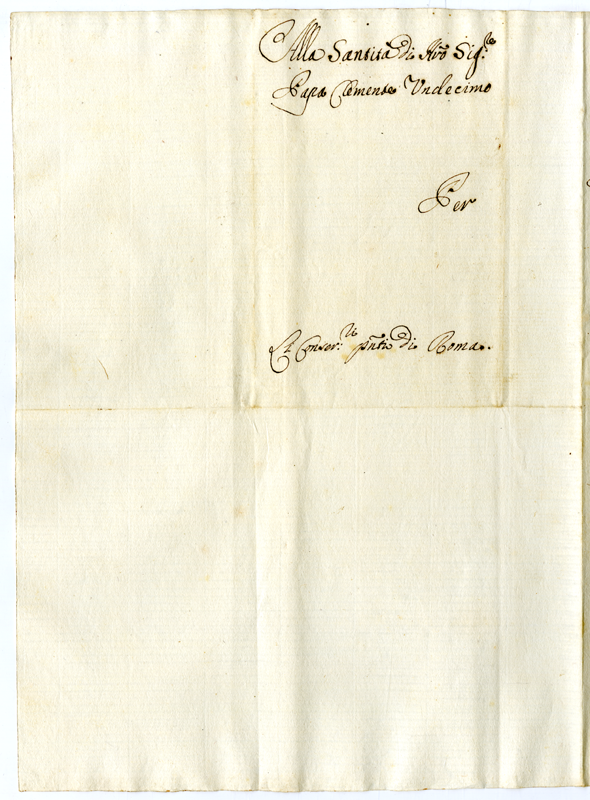 Alla Santità di Nrō Sig.re
Papa Clemente Undecimo
Per
Li Conser.ri pn̄ti di Roma.